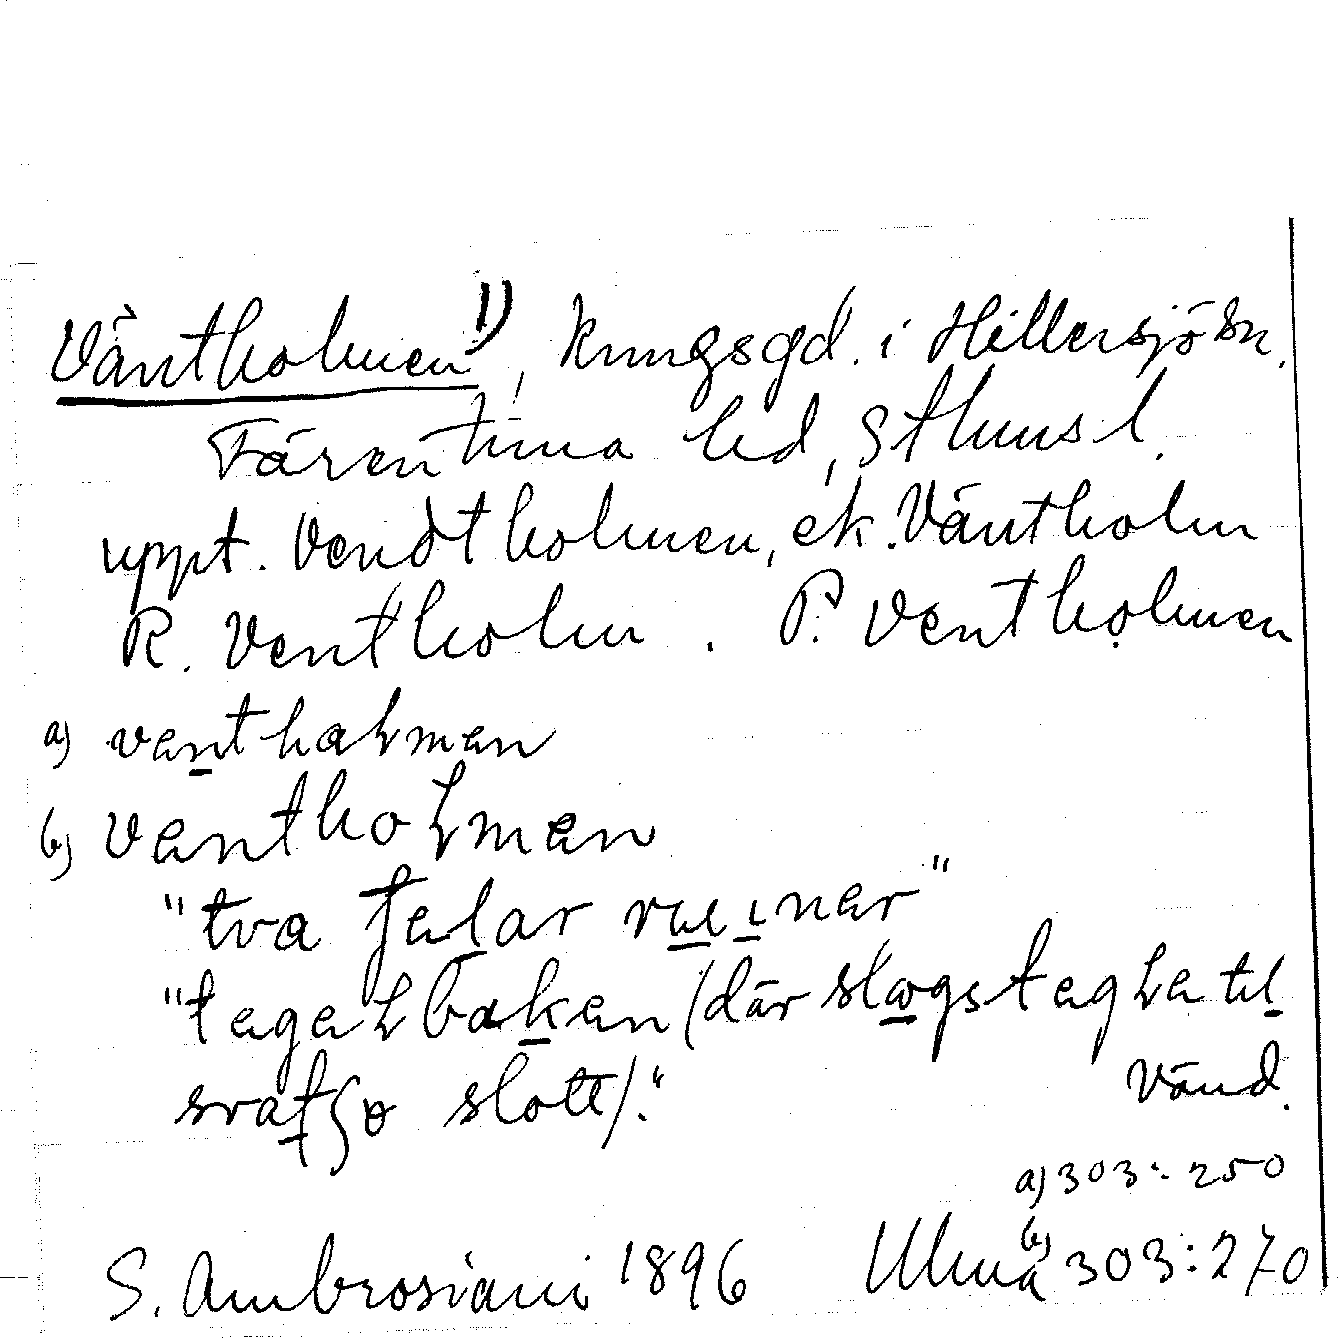 Väntholmen 1), kungsgd. i Hillersjö sn.
Färentuna hd, Sthms l.
uppt. Vendtholmen, ek. Väntholm
R. Ventholm. P. Ventholmen
a) vantholmen
b) vantholmen
"två ruiner"
(där slags
slott)."
Vänd.
a) 303:250
S. Ambrosiani 1896 Ulma b) 303:270